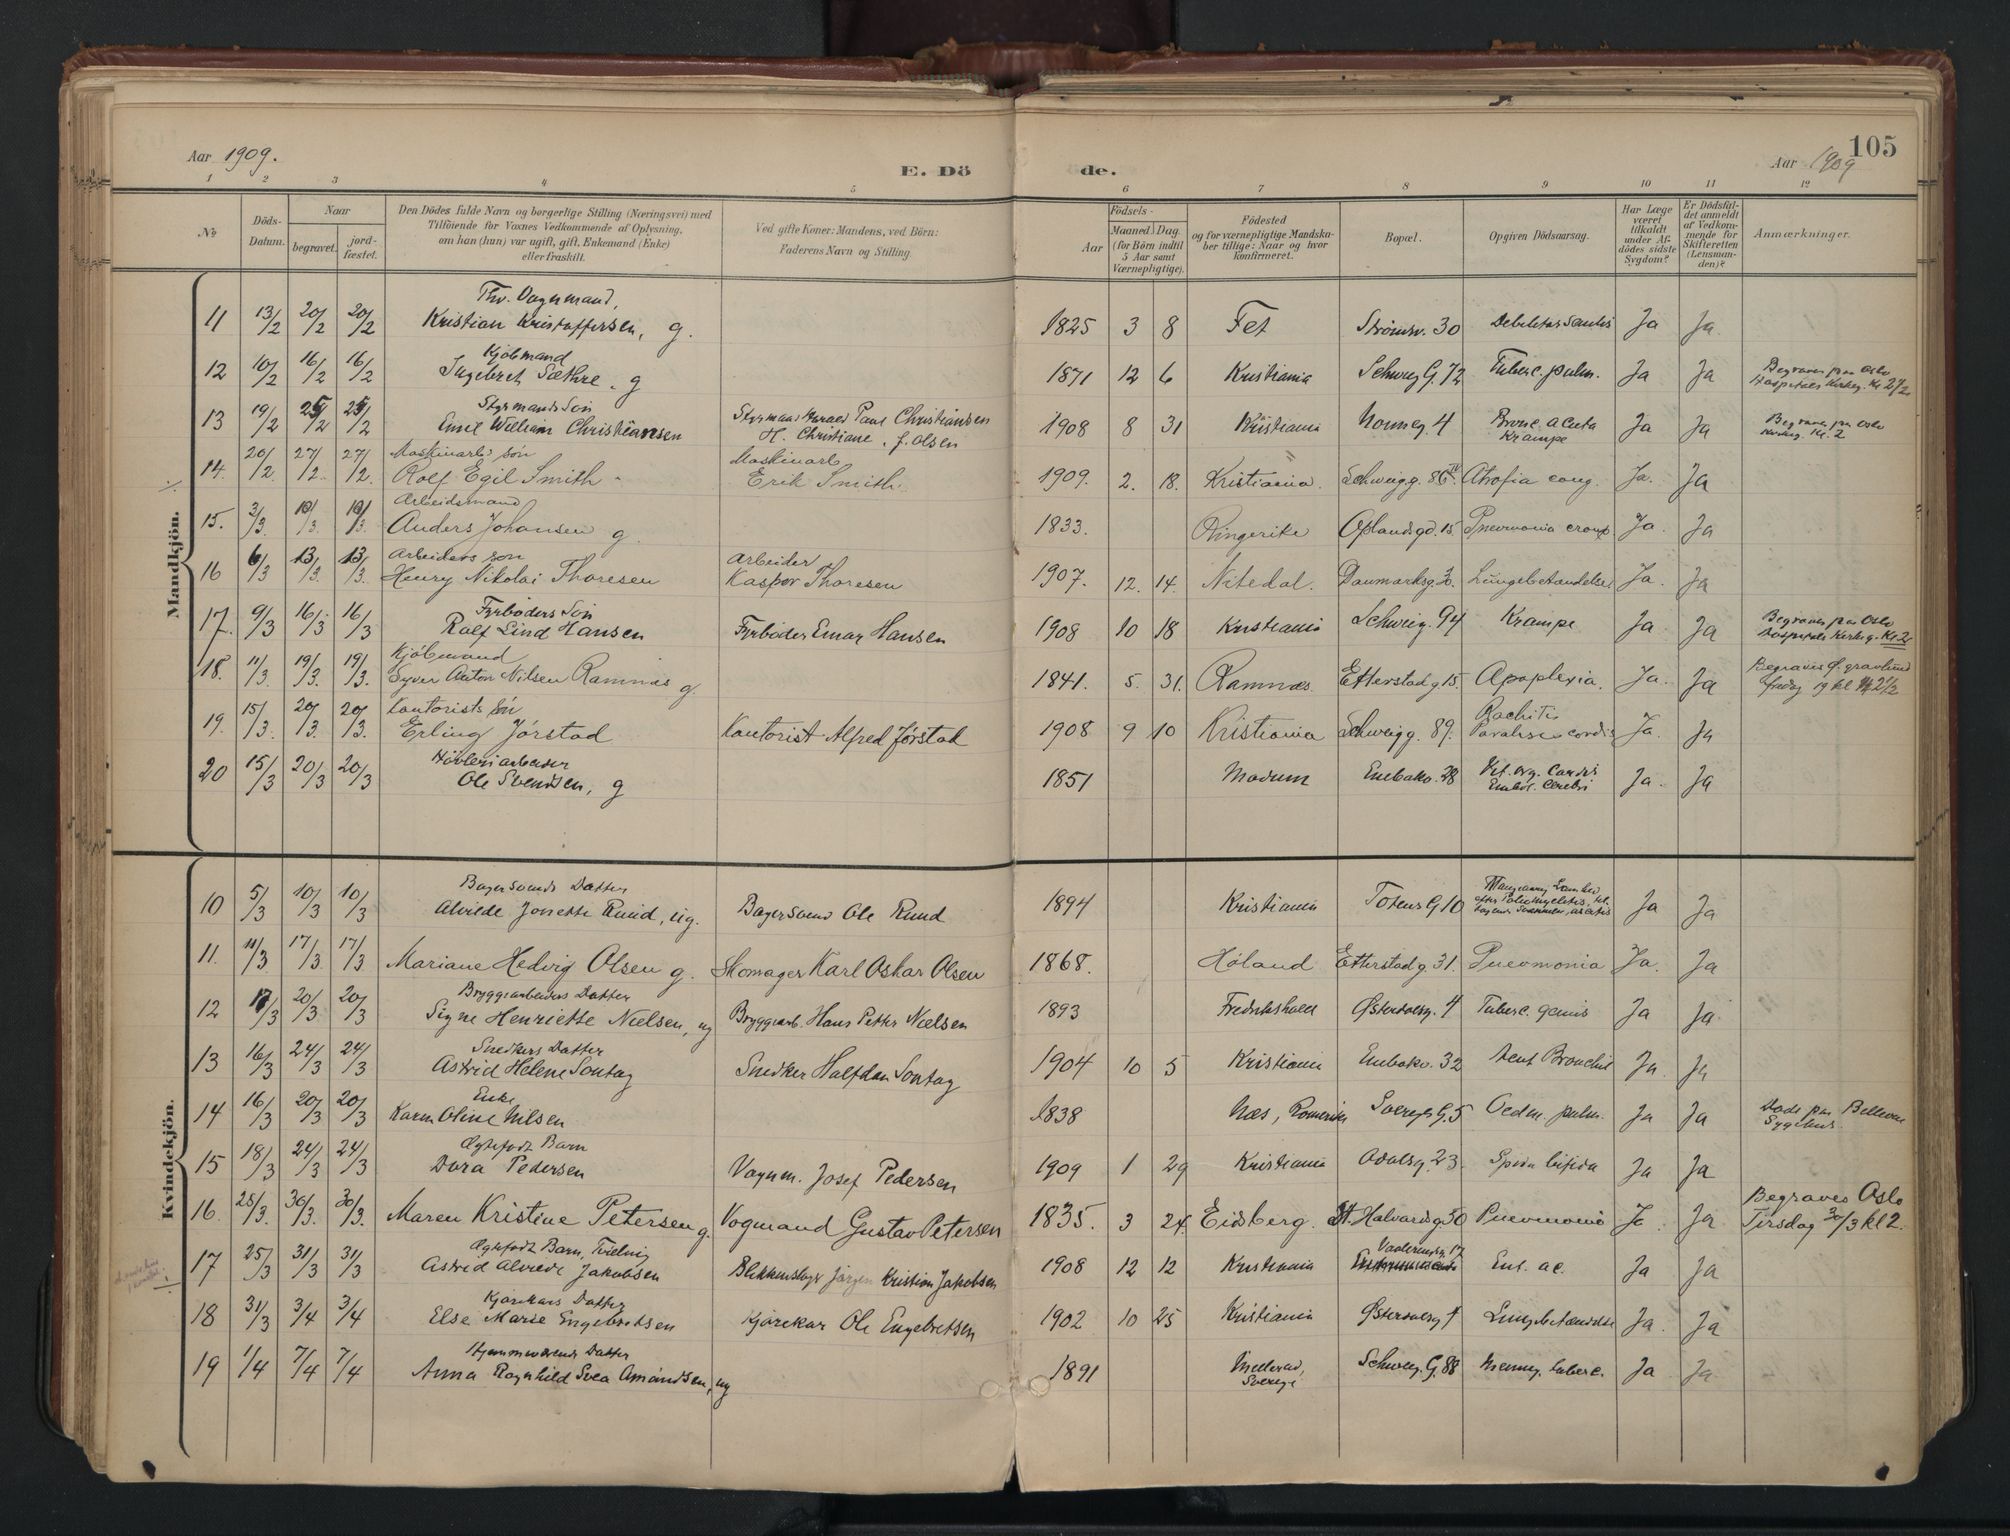 Aar 1909.
E. Dö
de.
105
Aar 1909
1 2 3 4 5 6 7 8 9 10 11 12
No
Döds-Datum.
Naar
begravet.
jord-fæstet.
Den Dödes fulde Navn og borgerlige Stilling (Næringsvei) med
Tilföiende for Voxnes Vedkommende af Oplysning,
om han (hun) var ugift, gift, Enkemand (Enke)
eller fraskilt.
Ved gifte Koner: Mandens, ved Börn:
Faderens Navn og Stilling.
Födsels-
Aar
Maaned. Dag.
(for Börn indtil
5 Aar samt
Værnepligtige).
Födested
og for værnepligtige Mandska-
ber tillige: Naar og hvor
konfirmeret.
Bopæl.
Opgiven Dödsaarsag.
Har Læge
været
tilkaldt
under Af-
dödes sidste
Sygdom?
Er Dödsfal-
det anmeldt
af Vedkom-
mende for
Skifteretten
(Lensman-
den)?
Anmærkninger.
Mandkjön.
11 13/2 20/2 20/2 Kristian Kristoffersen, g. 1825 3 8 Fet Strömsv. 30 Ja Ja
Kjöbmand
12 10/2 16/2 16/2 Ingebret Sæthre. g 1871 12 6 Kristiania Schweig G. 72 Tuberc. pulm. Ja Ja Begraves paa Oslo
Hospitals Kirkeg.
Styrmands Sön
13 19/2 25/2 25/2 Emil William Christiansen Styrmand Paul Christiansen
H. Christiane, f. Olsen 1908 8 31 Kristiania Nonneg. 4 Bronc. acuta
Krampe Ja Ja Begraves paa Oslo
Kirkeg. Kl. 2
Maskinarb. sön Maskinarb.
14. 20/2 27/2 27/2. Rolf Egil Smith Erik Smith. 1909. 2. 18. Kristiania. Schweigg. 86 Atrofia cong. Ja. Ja
Arbeidsmand
15. 3/3 10/3. 10/3. Anders Johansen g. 1833. Ringerike Oplandsgd. 15. Pneumonia croup. Ja. Ja
Arbeiders sön Arbeider
16 6/3 13/3. 13/3. Henry Nikolai Thoresen Kasper Thoresen 1907. 12. 14. Nitedal. Danmarksg. Lungebetændelse Ja. Ja
Fyrböders Sön
17. 9/3 16/3 16/3 Rolf Lind Hansen Fyrböder Einar Hansen 1908 10 18 Kristiania Schweig. 94 Krampe Ja Ja Begraves paa Oslo
Hospitals Kirkeg.
Kjöbmand
18. 11/3. 19/3. 19/3. Syver Anton Nilsen Ramnæs g. 1841. 5. 31. Ramnæs. Etterstadg. 15. Apoplexia. Ja. Ja Begraves Ø. gravlund
fredag 19 kl 2 1/2
Kontorists sön
19. 15/3. 20/3. 20/3. Erling Jørstad Kontorist Alfred Jørstad 1908 9 10 Kristiania Schweigg. 89. Rachitis
Paralise cordis Ja. Ja
Hövleriarbeider
20 15/3 20/3 20/3 Ole Svendsen, g 1851 Modum Enebakv. 28 Vit. org. Cordis
Embol. Cerebri Ja. Ja
Kvindekjön.
Bagersvends Datter
10 5/3 10/3 10/3 Alvilde Jonette Ruud, ug. Bagersvend Ole Ruud 1894 Kristiania Totens G. 10 Ja Ja
11. 11/3 17/3. 17/3. Mariane Hedvig Olsen g. Skomager Karl Oskar Olsen 1868. Høland Etterstadg. 31. Pneumonia Ja. Ja
Bryggearbeiders Datter
12 17/3 20/3 20/3 Signe Henriette Nielsen, ug Bryggearb. Hans Petter Nielsen 1893 Fredrikshald Østerdalsg. 4 Tuberc. genus Ja Ja
Snedkers Datter
13 16/3 24/3 24/3 Astrid Helene Sontag Snedker Halfdan Sontag 1904 10 5 Kristiania Enebakv. 32 Acut Bronchit Ja. Ja
Enke
14 16/3 20/3 20/3 Karen Oline Nilsen 1838 Næs, Romerike Sverres G. 5 Oedm. pulm. Ja Ja Döde paa Bellevue
Sygehus.
Ægtefödt Barn
15 18/3 24/3 24/3 Dora Pedersen Vognm. Josef Pedersen 1909 1 29 Kristiania Odalsg. 23. Spina bifida Ja Ja
16. 25/3. 30/3. 30/3. Maren Kristine Petersen g. Vogmand Gustav Petersen 1835. 3 24. Eidsberg. St. Halvardsg. 50 Pneumonia Ja. Ja Begraves Oslo
Tirsdag 30/3 kl 2.
Ægtefödt Barn, Tvilling
17 25/3 31/3 31/3 Astrid Alvilde Jakobsen Blikkenslager Jörgen Kristian Jakobsen 1908 12 12 Kristiania Vaalerengg. 17 Ent. ac. Ja Ja
Kjørekars Datter
18 31/3 3/4 3/4 Else Marie Engebretsen Kjørekar Ole Engebretsen 1902 10 25 Kristiania Østerdalsg. 7 Lungebetændelse Ja. Ja
Datter
19 1/4 7/4 7/4 Anna Ragnhild Svea Amundsen, ug 1891 Sverige Schweig. G. 88 Mening. tuberc. Ja Ja